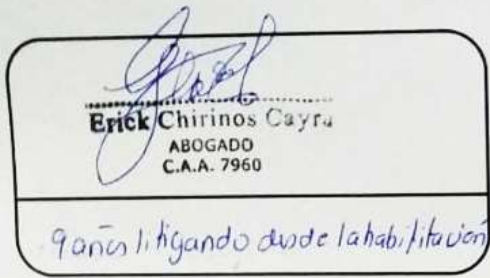 Erick Chirinos Cayra
ABOGADO
C.A.A. 7960
9 años litigando desde la habilitación